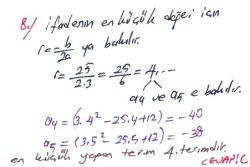 8-) ifadenin en küçük değeri için
r = -b/2a ya bakılır.
r = 25/2.3 = 25/6 = 4,...
a₄ ve a₅ e bakılır.
a₄ = (3.4² - 25.4 + 12) = -40
a₅ = (3.5² - 25.5 + 12) = -38
en küçük yapan terim 4. terimdir.
CEVAP: C